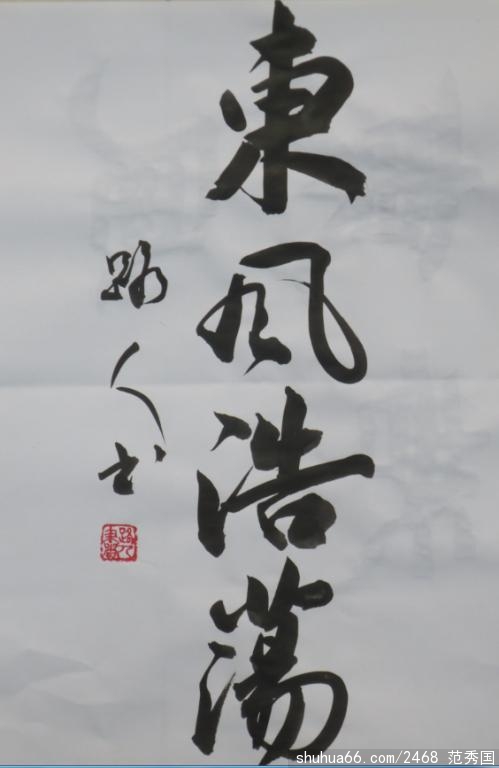 東風浩蕩
路人书
shuhua66.com/2468 范秀国